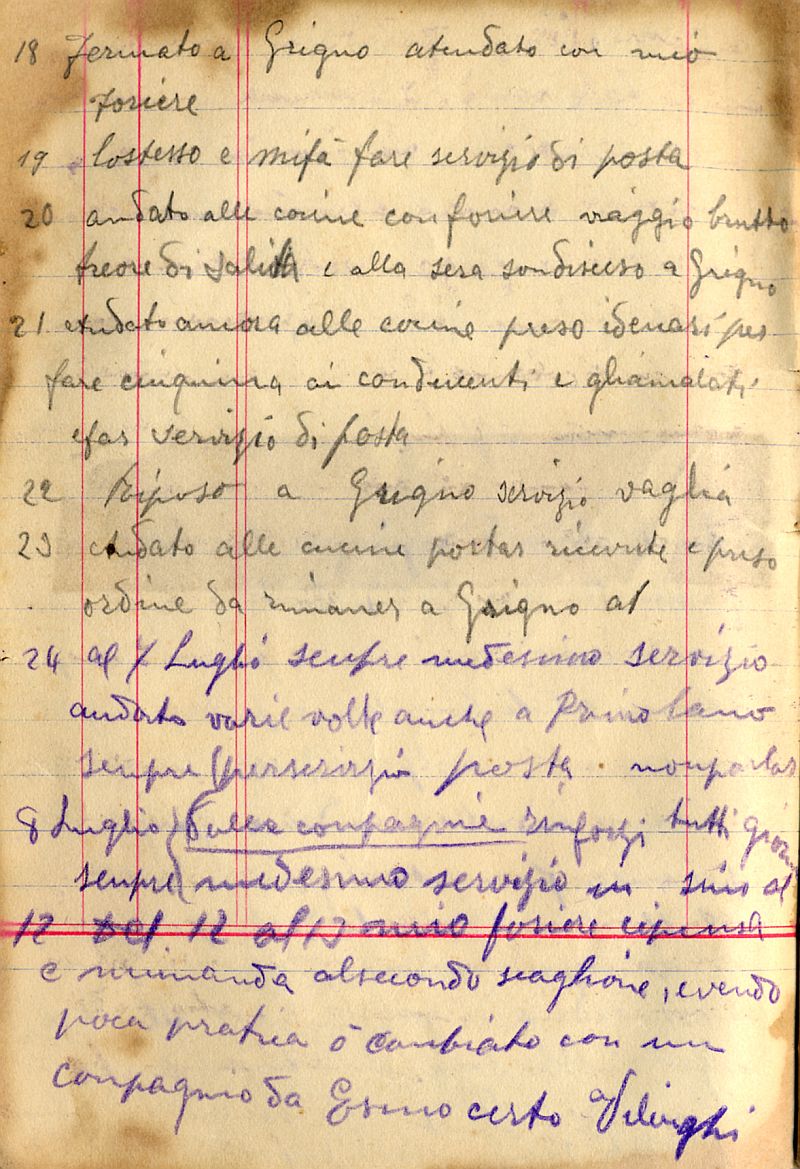 18 fermato a Grigno atendato con mio
foriere
19 lostesso e mifà fare servizio di posta
20 andato alle cocine con foriere viaggio brutto
treore di salita e alla sera sondiscieso a Grigno
21 andato ancora alle cocine preso idenari per
fare cinquina ai conducenti e gliamalati
efar servizio di posta
22 Riposo a Grigno servizio vaglia
23 andato alle cucine portar ricevute e preso
ordine da rimaner a Grigno al
24 al 7 Luglio senpre medesimo servizio
andato varie volte anche a Primolano
senpre perservizio posta nonparlar
8 Luglio dalla conpagnie rinforzi tutti giorni
senpre medesimo servizio in sino al
12 Del 12 al 13 mio foriere cipensa
e mimanda alsecondo scaglione, evendo
poca pratica ò canbiato con un
conpagnio da Esino certo